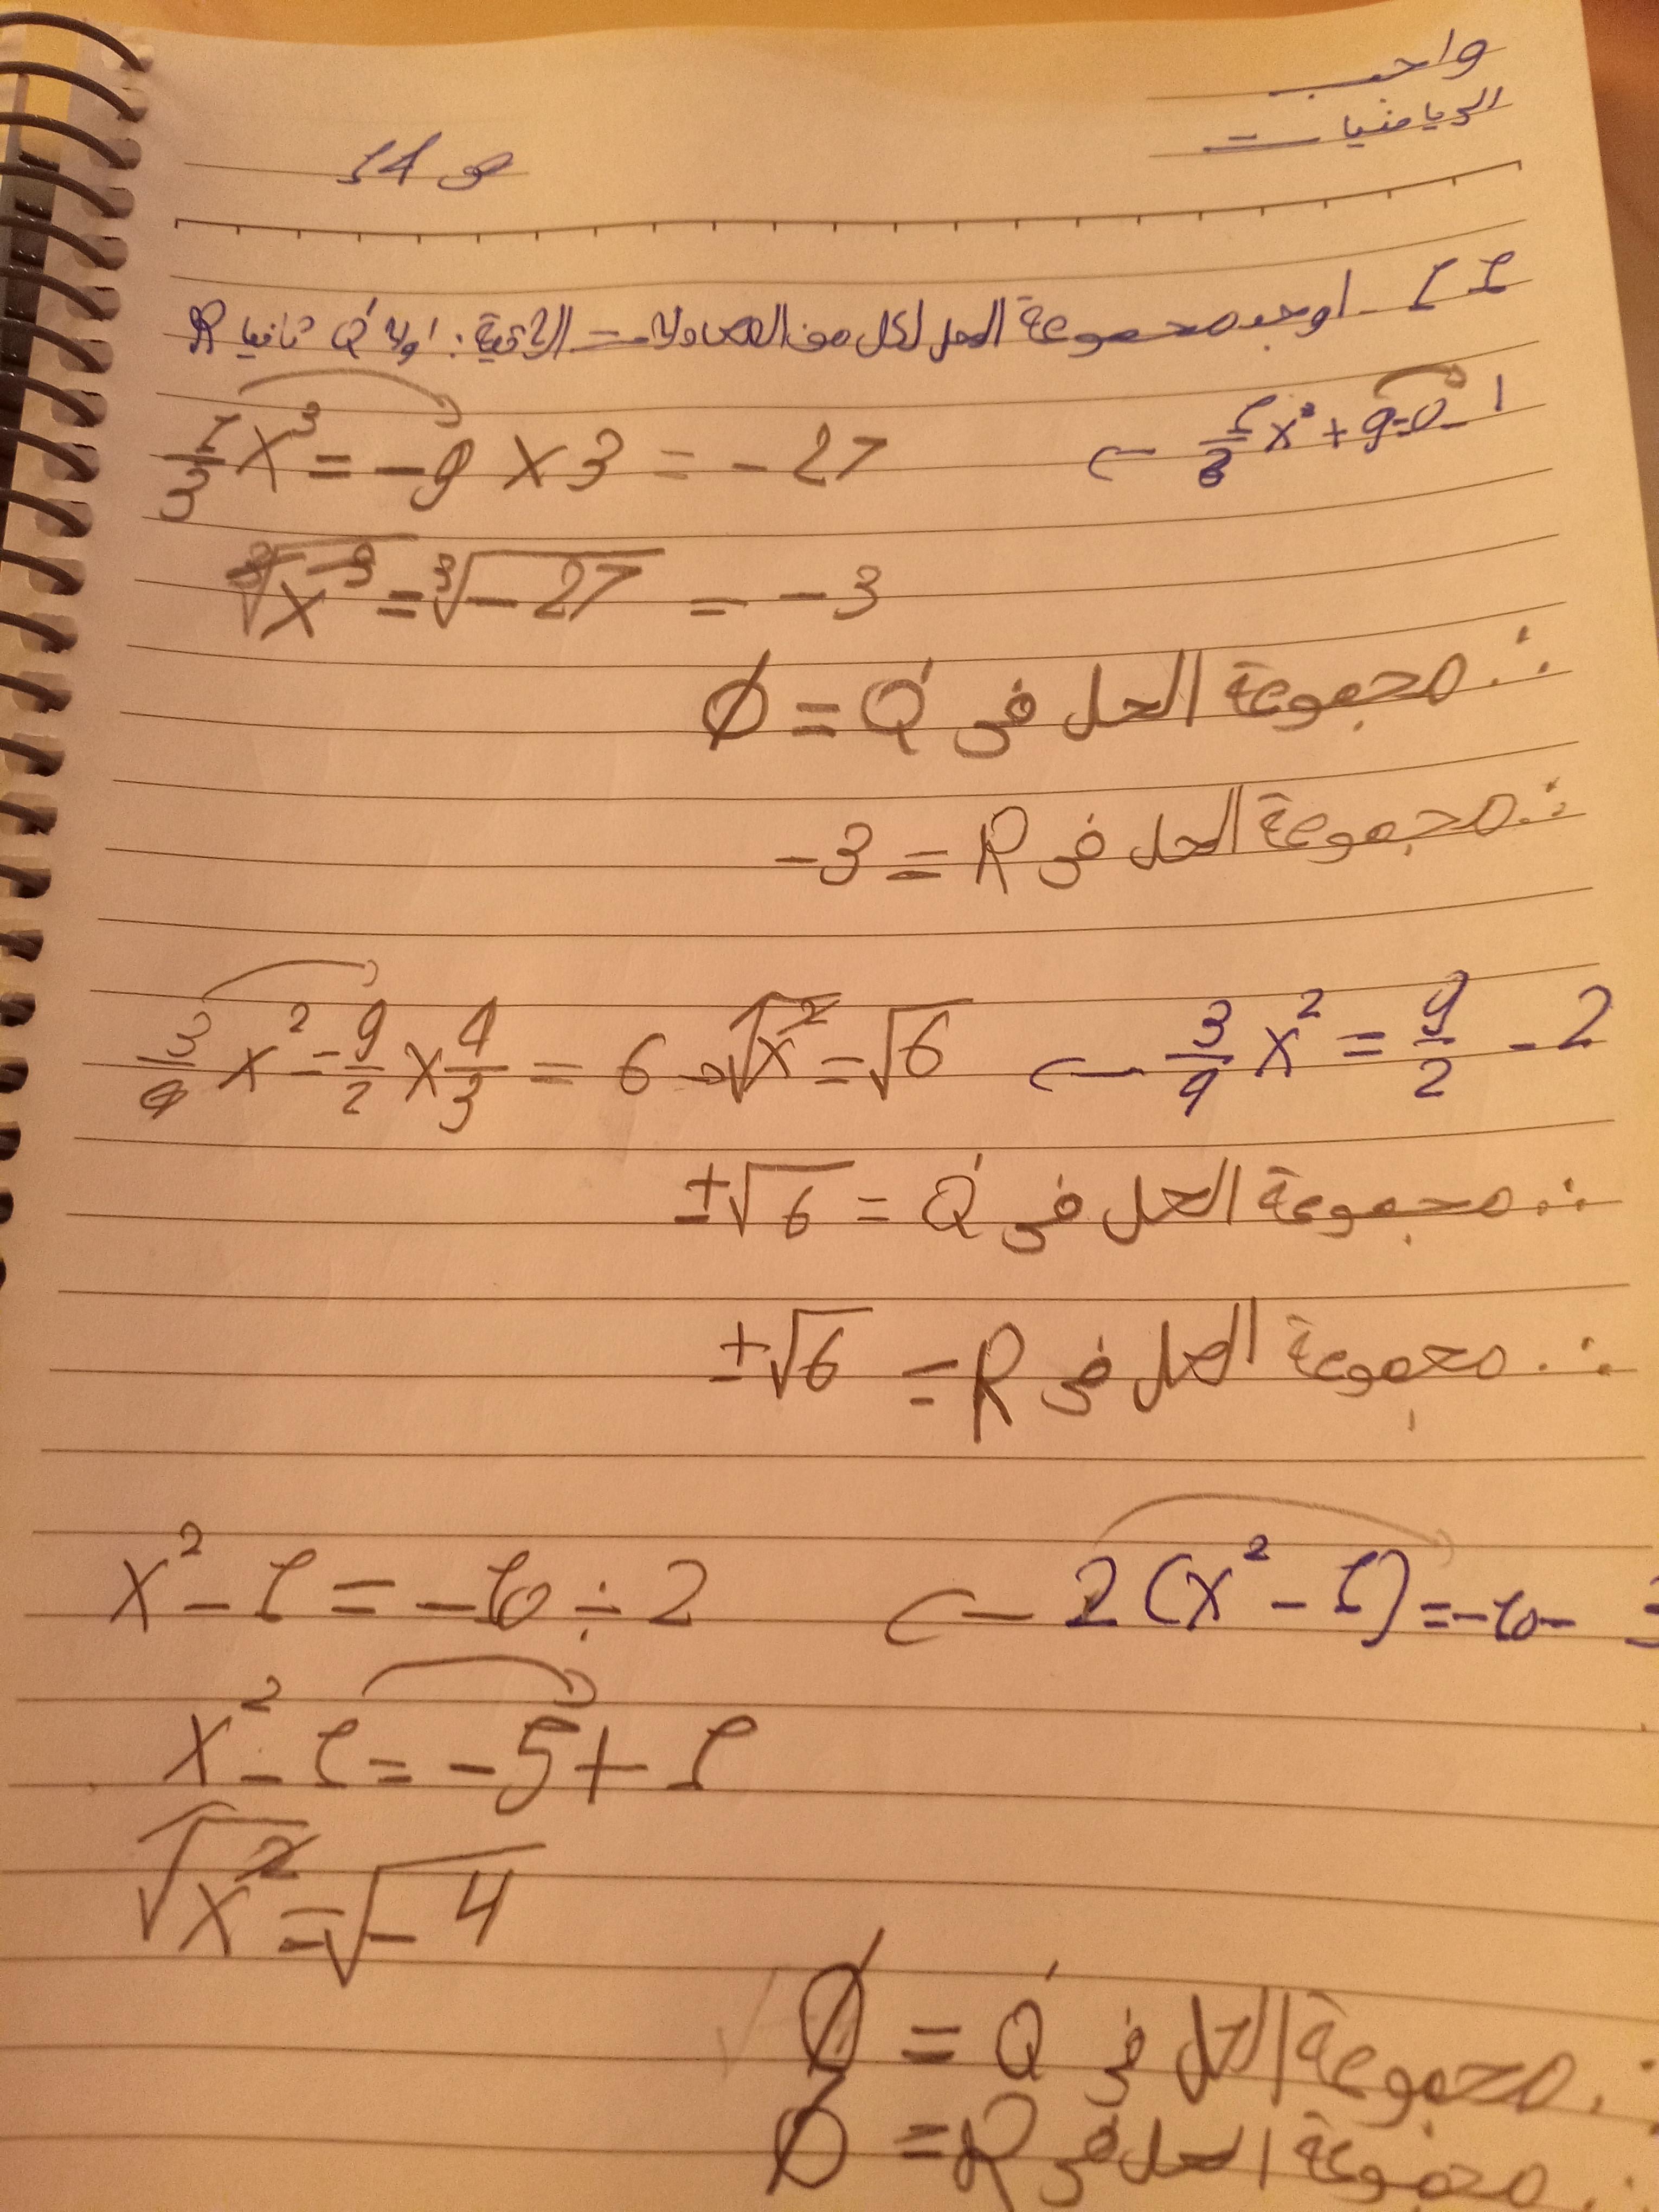 واجب
الرياضيات
ص 14
11- اوجد مجموعة الحل لكل من المعادلات الآتية: اولا Q' ثانيا R
1- 1/3 x³ + 9 = 0
1/3 x³ = -9 × 3 = -27
³√x³ = ³√-27 = -3
∴ مجموعة الحل في Q' = Ø
∴ مجموعة الحل في R = -3
2- 3/4 x² = 9/2
3/4 x² = 9/2 × 4/3 = 6 → √x² = √6
∴ مجموعة الحل في Q' = ±√6
∴ مجموعة الحل في R = ±√6
3- 2(x² - 1) = -10
x² - 1 = -10 ÷ 2
x² - 1 = -5 + 1
√x² = √-4
∴ مجموعة الحل في Q' = Ø
∴ مجموعة الحل في R = Ø